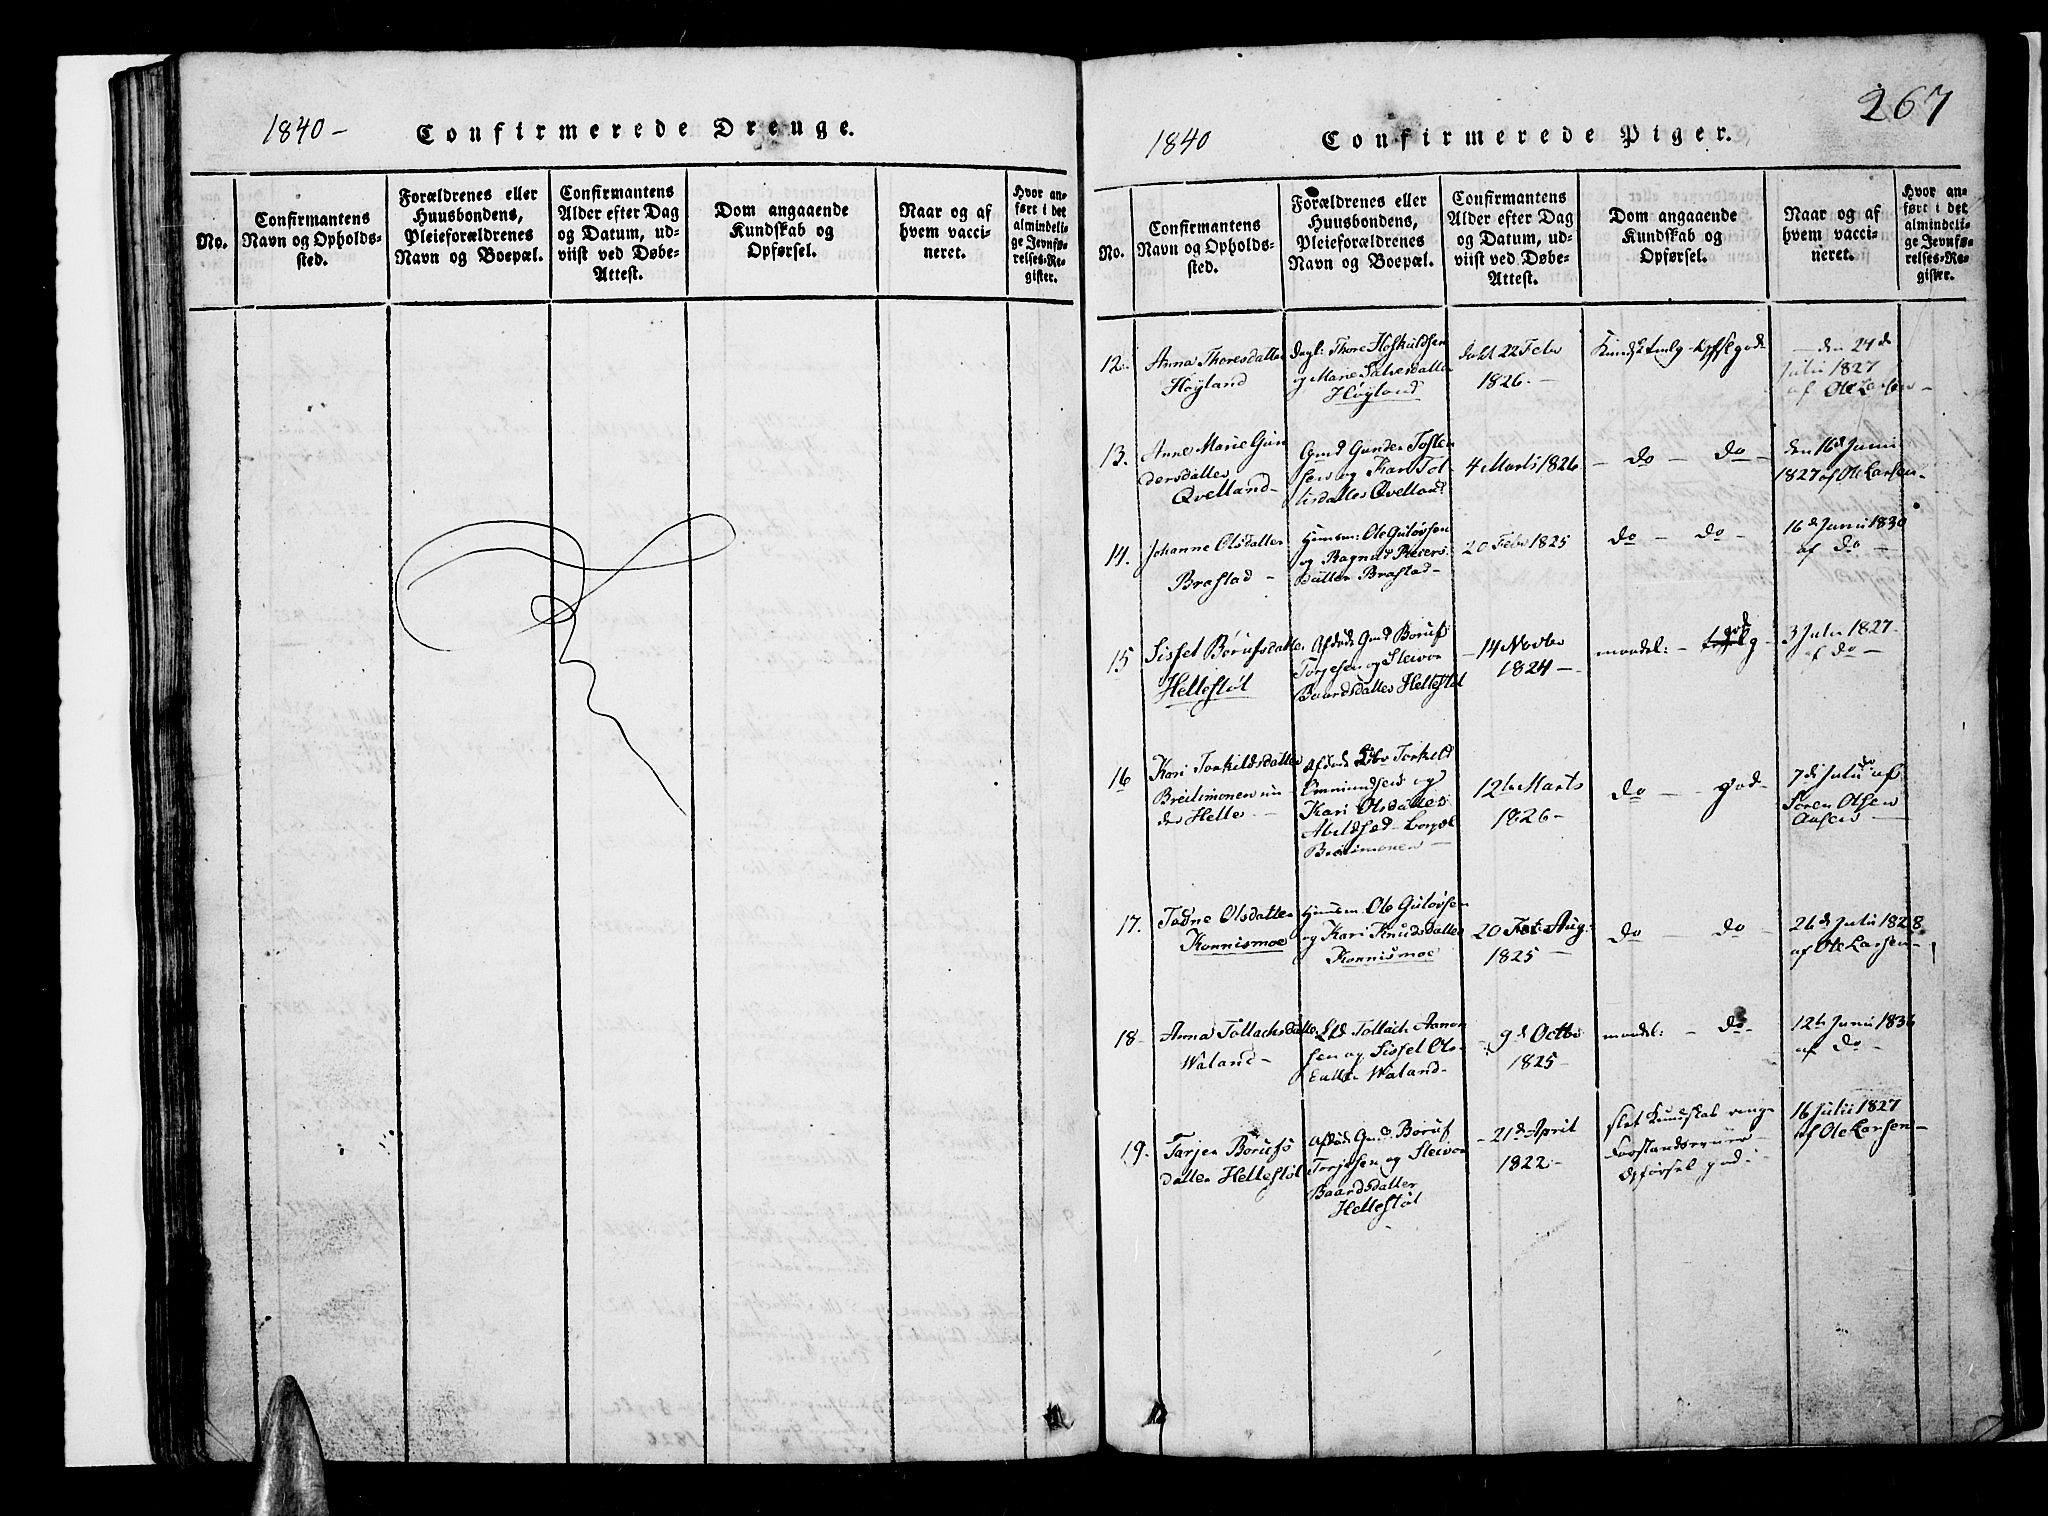 1840 - Confirmerede Drenge.
No.
Confirmantens
Navn og Opholds-
sted.
Forældrenes eller
Huusbondens,
Pleieforældrenes
Navn og Boepæl.
Confirmantens
Alder efter Dag
og Datum, ud-
viist ved Døbe-
Attest.
Dom angaaende
Kundskab og
Opførsel.
Naar og af
hvem vacci-
neret.
Hvor an-
ført i det
almindeli-
ge Jevnfø-
relses-Re-
gister.
267
1840 Confirmerede Piger.
No.
Confirmantens
Navn og Opholds-
sted.
Forældrenes eller
Huusbondens,
Pleieforældrenes
Navn og Boepæl.
Confirmantens
Alder efter Dag
og Datum, ud-
viist ved Døbe-
Attest.
Dom angaaende
Kundskab og
Opførsel.
Naar og af
hvem vacci-
neret.
Hvor an-
ført i det
almindeli-
ge Jevnfø-
relses-Re-
gister.
12.
Anna Thoresdatter
Høyland
Thore Hofkuldsen
og Marie Salvesdatter
Høyland
22 Febr
1826. -
god
- den 24de
Julii 1827
af Ole Larsen -
13.
Anne Marie Gun
dersdatter
Qvelland -
Gmd Gunder Tosten
sen og Kari Tol
lisdatter Qvelland
4 Marts 1826
- do - do -
den 16d Junii
1827 af Ole Larsen -
14.
Johanne Olsdatter
Brastad -
Huusm: Ole Guløvsen
og Ragnild Peders
datter Brastad -
20 Febr 1825
do - do -
16d Junii 1830
af do -
15
Sissel Børufsdatter
Hellestøl
Afdøde Gmd Boruf
Torjesen og Sleivor
Baardsdatter Hellestøl
- 14 Novbr
1824 -
maadel: - god
3 Julii 1827.
af do -
16
Kari Torkildsdatter
Breilimonen un
der Helle -
Afdøde Torkeld
Ommundsen og
Kari Olsdatter
Abildsød Boepæl
Breilimonen -
12te Marts
1826 -
do - god -
7de Julii af
Søren Olsen
17.
Tadne Olsdatter
Konnismoe
Huusm: Ole Guløvsen
og Kari Knudsdatter
Konnismoe
20 Aug:
1825 -
do - do -
26d Julii 1828
af Ole Larsen -
18 -
Anna Tollachsdatter
Waland -
Tollach Aanen
sen og Sissel Ols-
datter Waland -
9d Octbr
1825 -
maadel: - do -
12te Junii 1836
af do -
19.
Tarjer Børufs
datter Hellestøl
Afdøde Gmd Boruf
Torjesen og Sleivor
Baardsdatter
Hellestøl
- 21d April
1822 -
slet Kundskab ringe
Forstandsevner -
Opførsel god:
16 Julii 1827
af Ole Larsen -